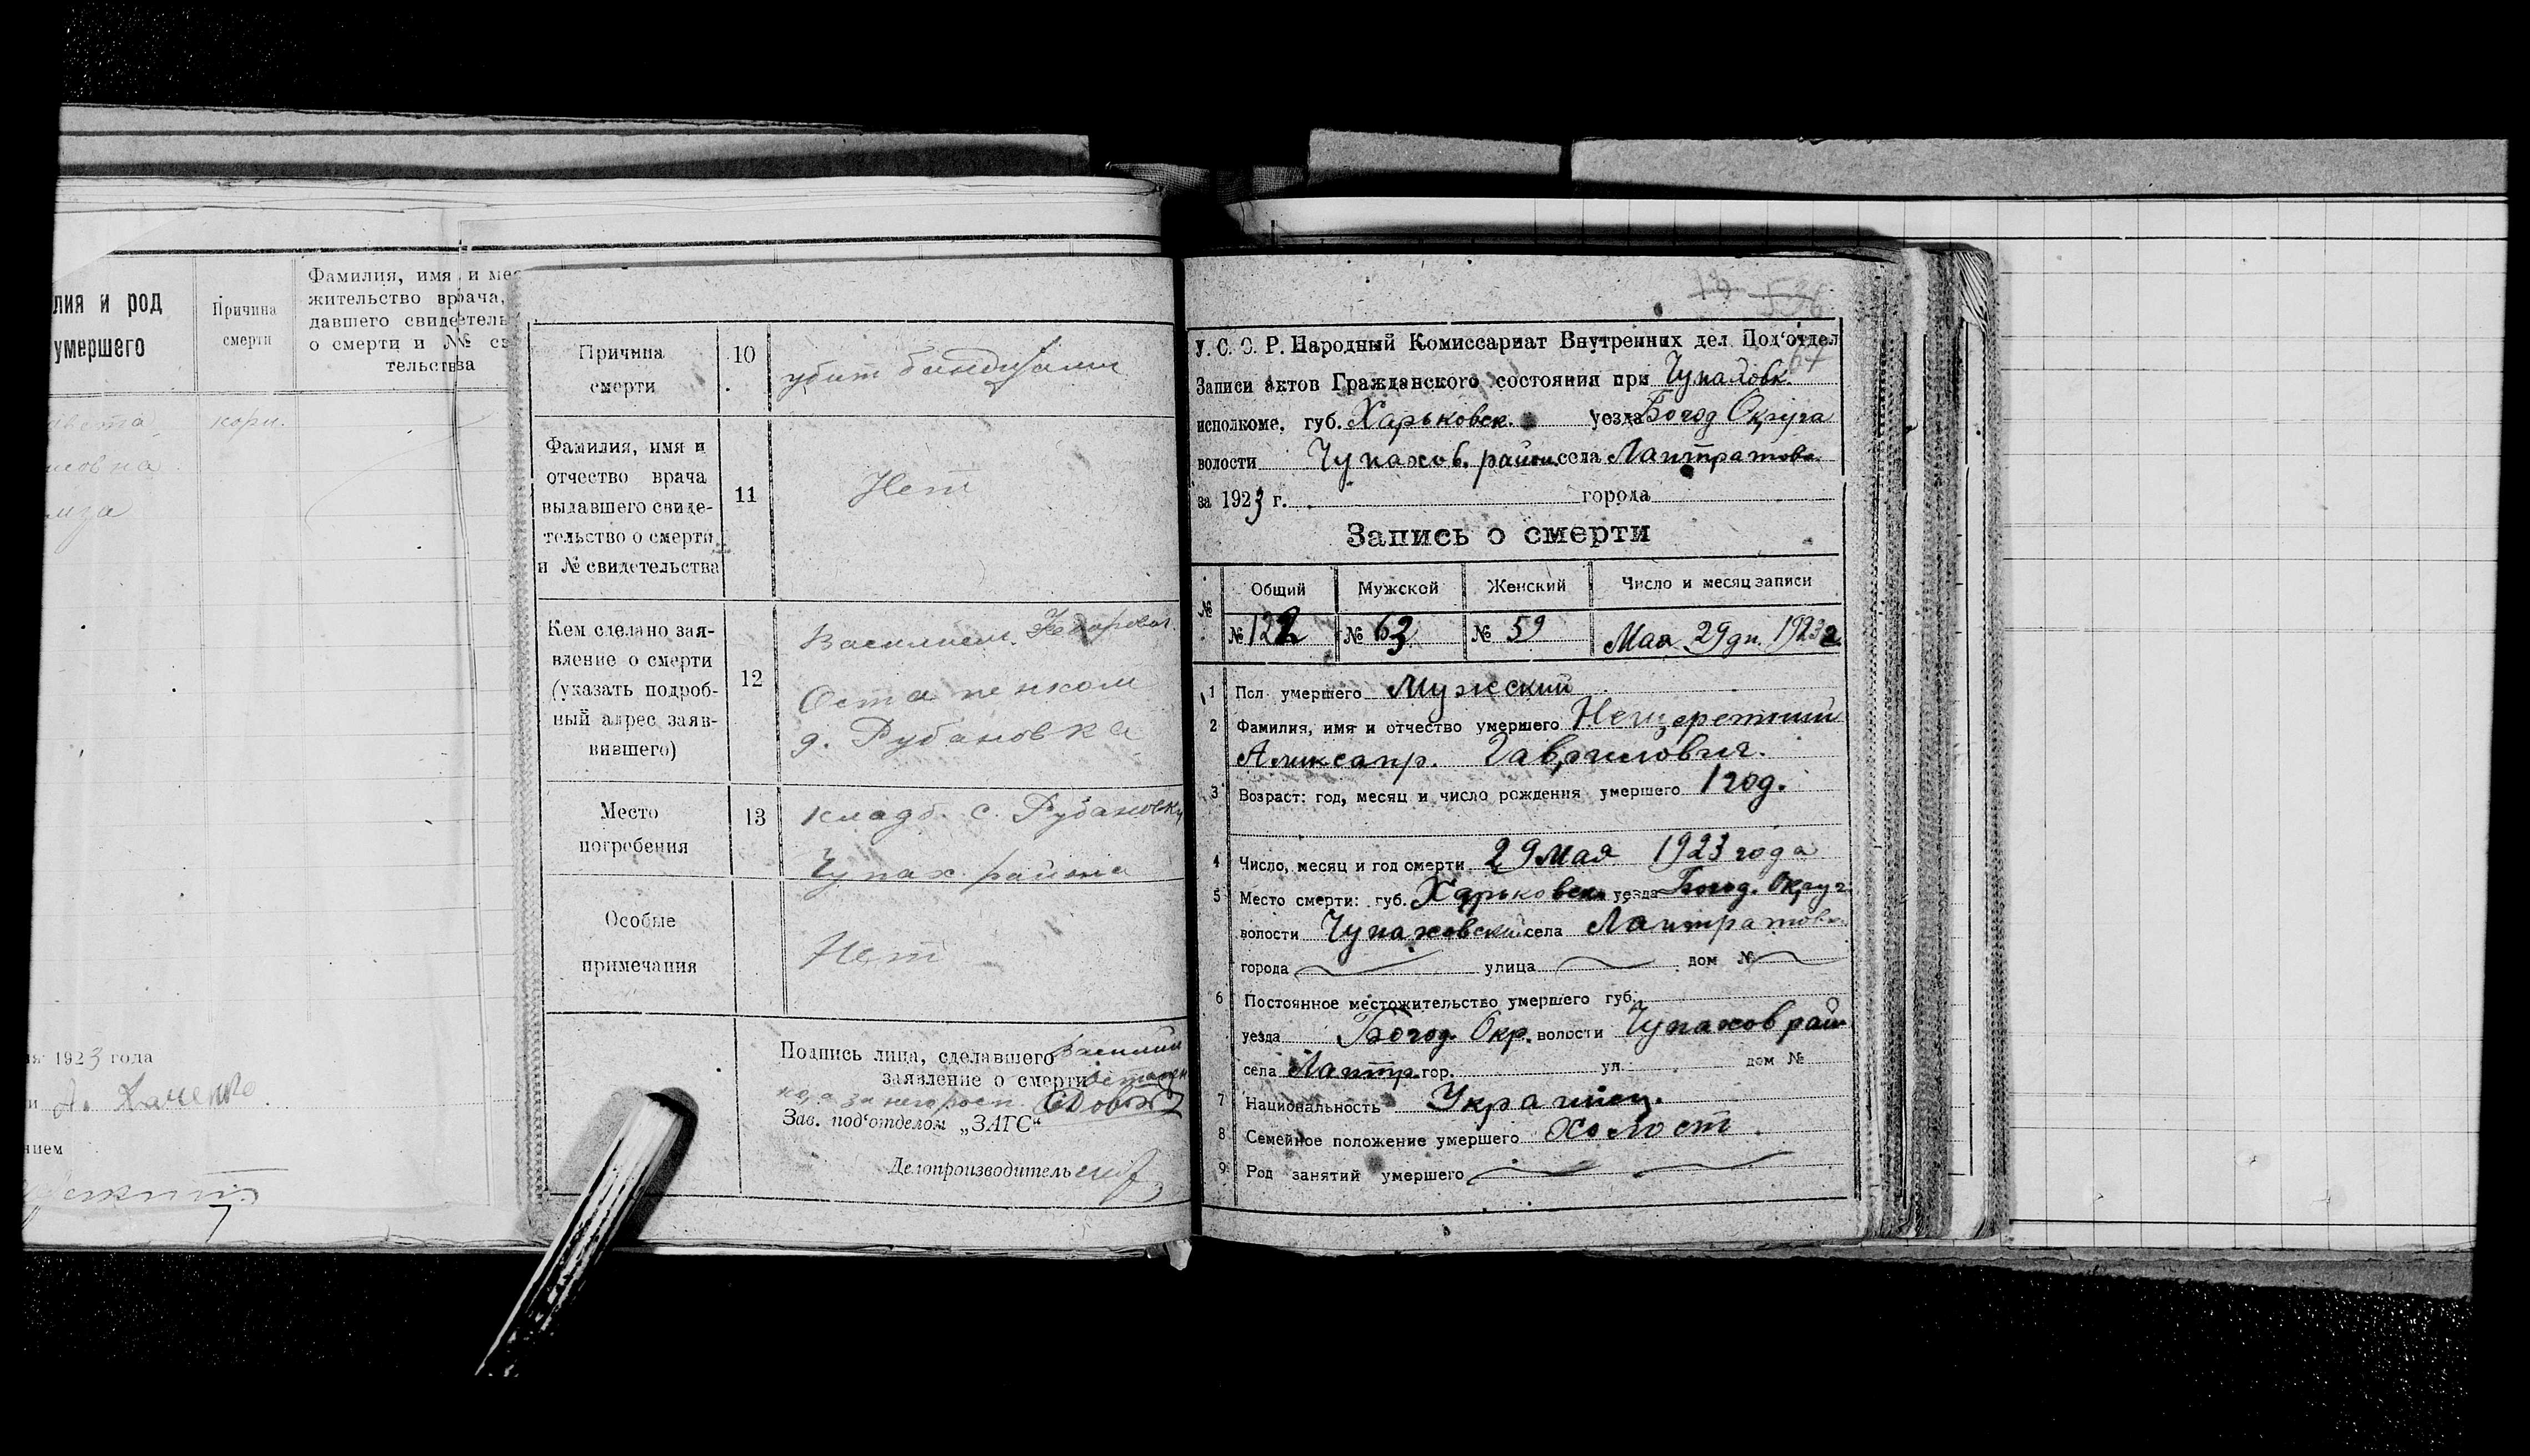 лия и род
умершего
Причина
смерти
Фамилия, имя и мес
жительство врача,
давшего свидетель
о смерти и №№ св
тельства
корн.
1923 года
нием
7
Причина
смерти
10
убит бандитами
Фамилия, имя и
отчество врача
выдавшего свиде-
тельство о смерти
и № свидетельства
11
Нет
Кем сделано зая-
вление о смерти
(указать подроб-
ный адрес заяв-
вившего)
12
Василием Федоров.
Остапенком
д. Рубановка
Место
погребения
13
кладб. с. Рубановки
Чупах. района
Особые
примечания
Нет
Подпись лица, сделавшего Василий
заявление о смерти Остапен
ко, а за него росп.
Зав. под‘отделом „ЗАГС“
Делопроизводитель
19 536
67
У. С. С. Р. Народный Комиссариат Внутренних дел Под‘отдел
Записи актов Гражданского состояния при Чупаховк.
исполкоме, губ. Харьковск. уезда Богод Округа
волости Чупахов. район. села Лантратовк
за 1923 г. города
Запись о смерти
№ Общий Мужской Женский Число и месяц записи
№ 122 № 63 № 59 Мая 29 дн. 1923 г.
1 Пол умершего Мужеский
2 Фамилия, имя и отчество умершего Нещеретний
Аликсанр. Гаврилович.
3 Возраст: год, месяц и число рождения умершего 1 год.
4 Число, месяц и год смерти 29 Мая 1923 года
5 Место смерти: губ. Харьковск уезда Богод. Округ
волости Чупаховский села Лантратов
города улица дом №
6 Постоянное местожительство умершего губ.
уезда Богод. Окр. волости Чупахов рай
села Лантр. гор. ул. дом №
7 Национальность Украинец.
8 Семейное положение умершего Холост
9 Род занятий умершего